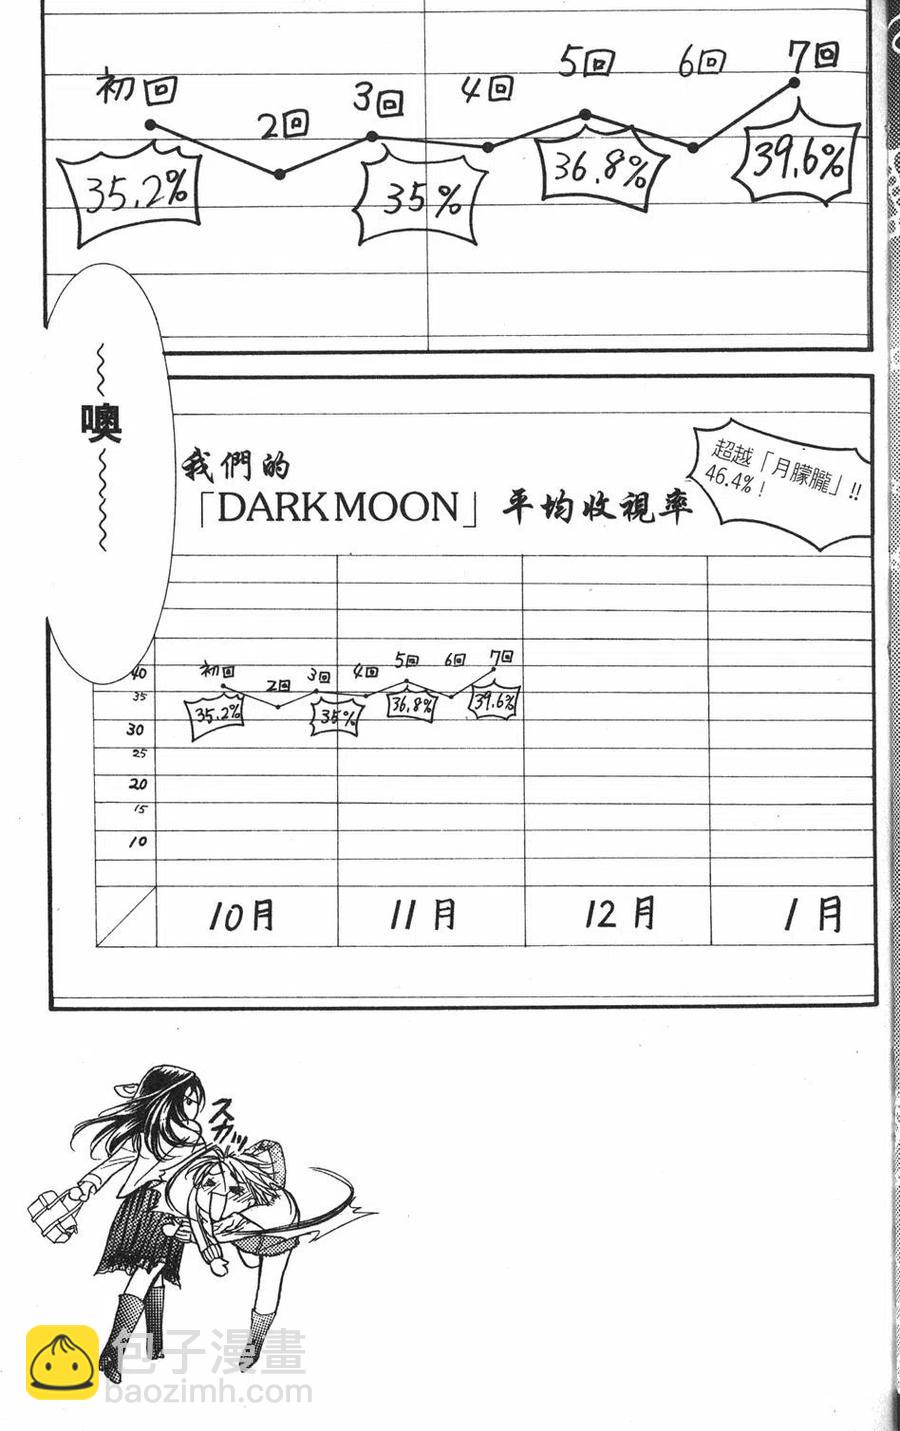 初回
2回
3回
4回
5回
6回
7回
35.2%
35%
36.8%
39.6%
噢
我們的
「DARK MOON」平均收視率
超越「月朦朧」!!
46.4%!
初回
2回
3回
4回
5回
6回
7回
35.2%
35%
36.8%
39.6%
40
35
30
25
20
15
10
10月
11月
12月
1月
スカッ
包子漫畫
baozimh.com